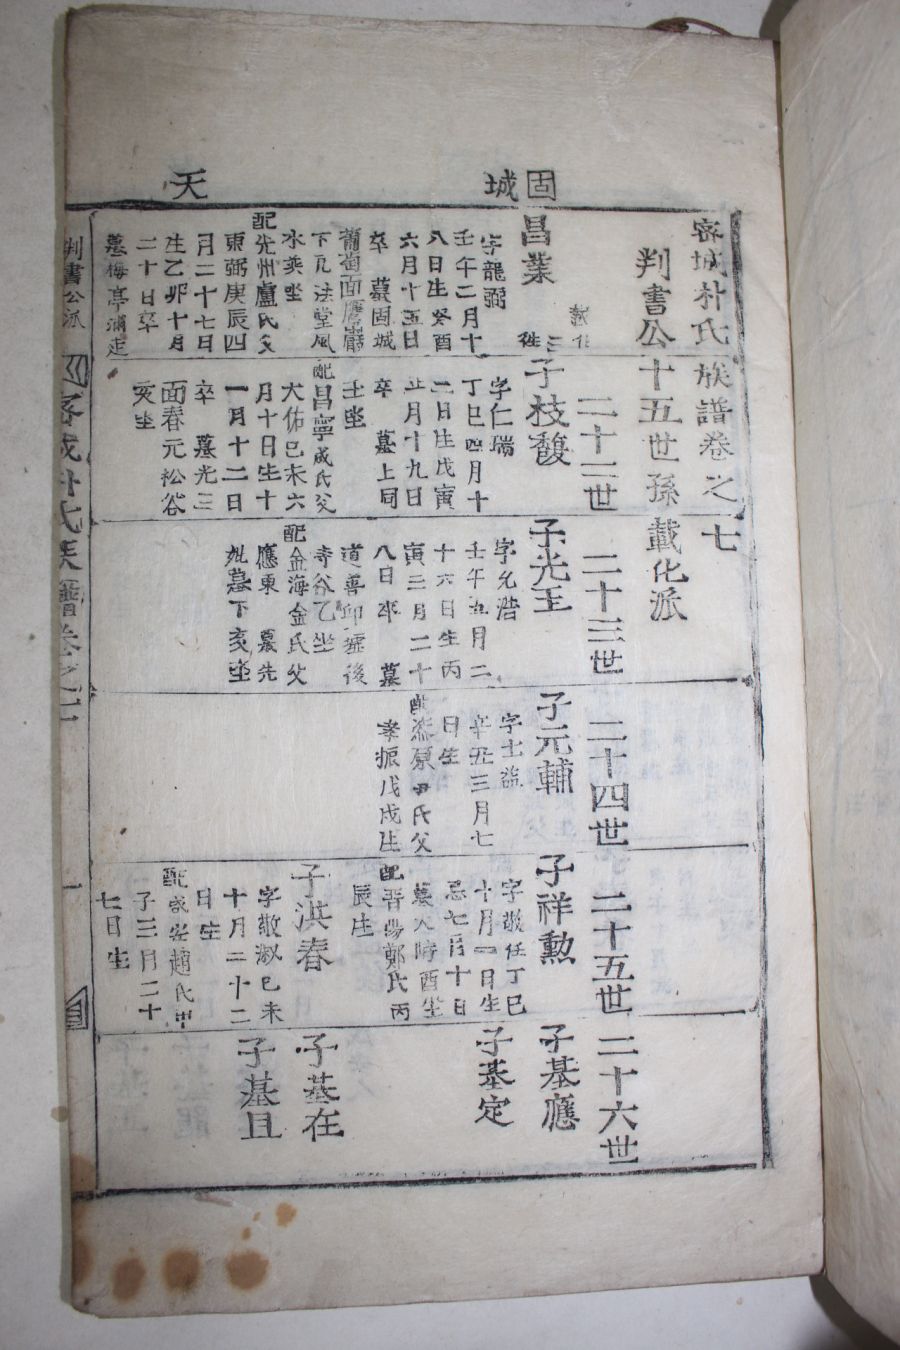 固城
天
密城朴氏族譜卷之七
判書公十五世孫載化派
昌業
字龍彌
壬午二月十
八日生癸酉
六月十五日
卒 墓固城
葡萄面鷹巖
下瓦法堂風
水亥坐
配光州盧氏父
東弼庚辰四
月二十七日
生乙卯十月
二十日卒
墓梅亭浦走
二十二世
子枝馥
字仁瑞
丁巳四月十
二日生戊寅
正月十九日
卒 墓上同
壬坐
配昌寧成氏父
大佑己未六
月十日生十
一月十二日
卒 墓光三
面春元松谷
亥坐
二十三世
子光玉
字允浩
壬午五月二
十六日生丙
寅三月二十
八日卒 墓
道善卯墟後
寺谷乙坐
配金海金氏父
應東 墓先
妣墓下亥坐
二十四世
子元輔
字士益
辛丑三月七
日生
配柒原尹氏父
孝振戊戌生
二十五世
子祥勳
字敬任丁巳
十月一日生
忌七月十日
墓大峙酉坐
配晋陽鄭氏丙
辰生
子洪春
字敬淑己未
十月二十二
日生
配咸安趙氏甲
子三月二十
七日生
二十六世
子基應
子基定
子基在
子基且
判書公派
密城朴氏族譜卷之七
一